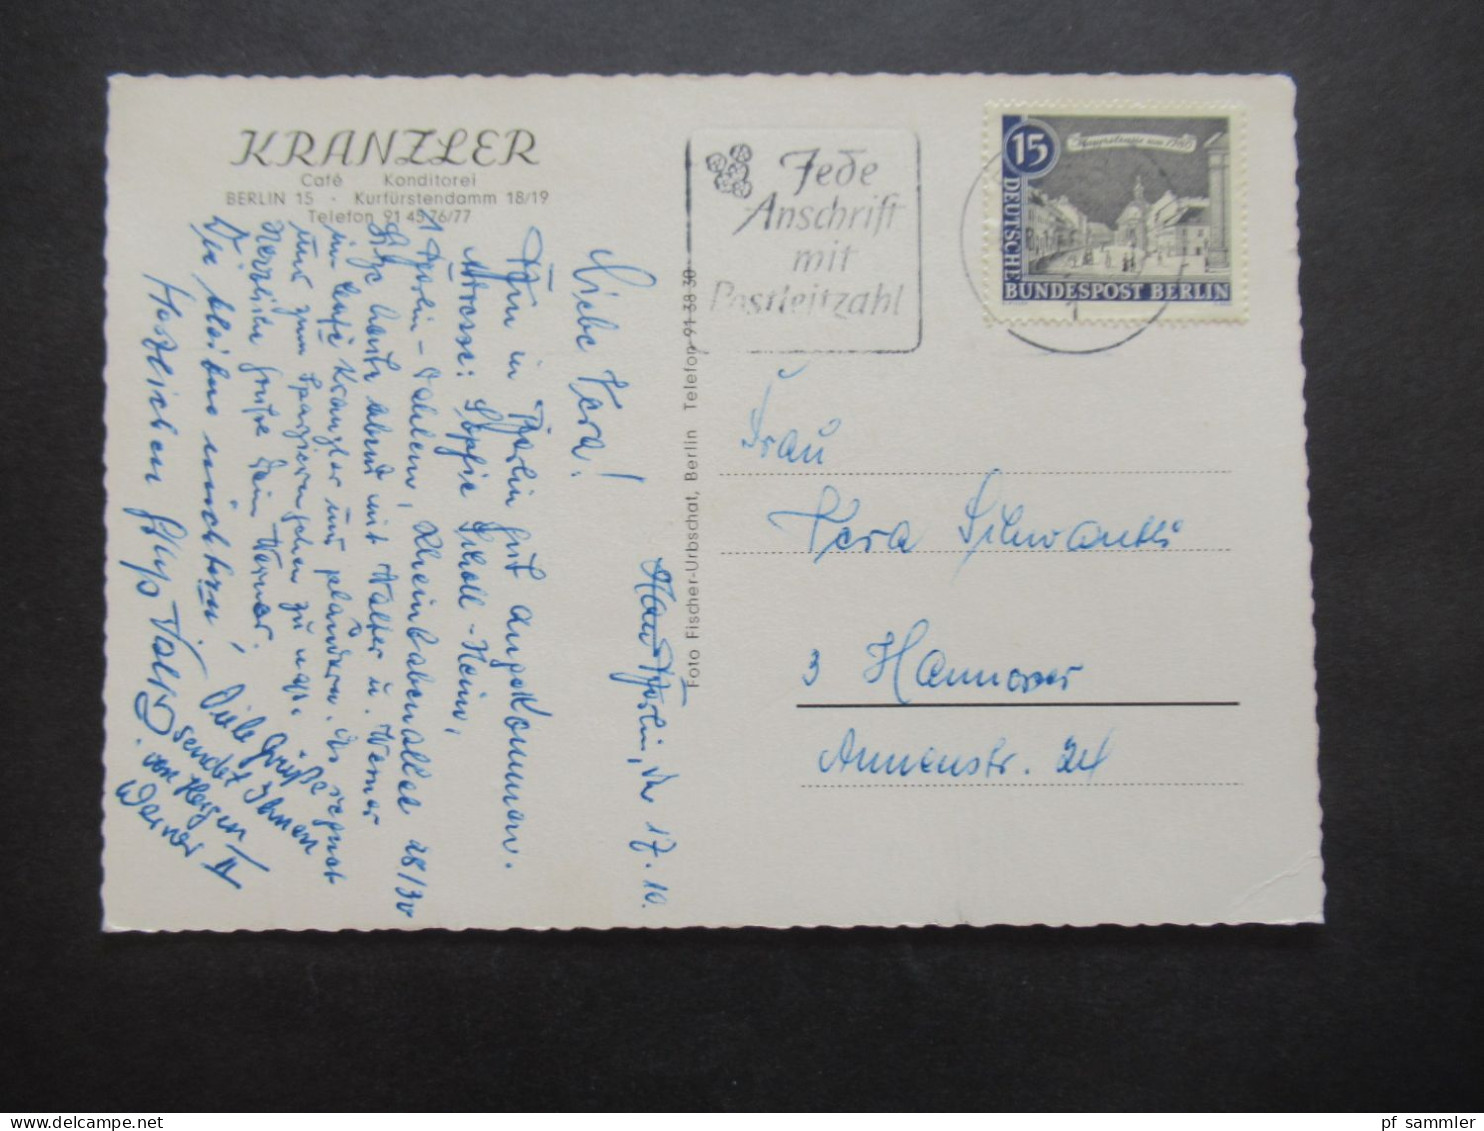 KRANZLER
Café Konditorei
BERLIN 15 - Kurfürstendamm 18/19
Telefon 91 45 76/77
Jede
Anschrift
mit
Postleitzahl
15
DEUTSCHE
BUNDESPOST BERLIN
Foto Fischer-Urbschat, Berlin Telefon 91 38 30
Berlin, den 17.10.
Liebe Vera!
Nun in Berlin gut angekommen.
Adresse: Sophie Scholl-Heim,
1 Berlin-Dahlem, Rheinbabenallee 28/30
Sitze heute abend mit Walter u. Werner
im Café Kranzler und plaudern. Es regnet
nur zum spazierengehen zu
Herzliche Grüße Dein Werner
Wir bleiben nüchtern,
Herzlichen Gruß
Viele Grüße
sendet Ihnen
von Herzen
Werner II
Frau
Vera
3 Hannover
Annenstr. 24